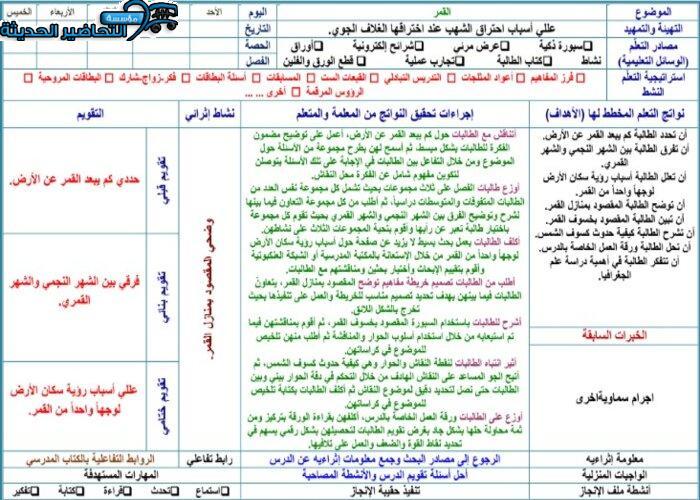 الموضوع
القمر
اليوم
الأحد
الأربعاء
الخميس
مؤسسة
التحاضير الحديثة
التهيئة والتمهيد
عللي أسباب احتراق الشهب عند اختراقها الغلاف الجوي.
التاريخ
مصادر التعلم
(الوسائل التعليمية)
سبورة ذكية
عرض مرئي
شرائح إلكترونية
أوراق
نشاط
كتاب الطالبة
تجارب عملية
قطع الورق والفلين
الحصة
الفصل
استراتيجية التعلم
النشط
فرز المفاهيم
أعواد المثلجات
التدريس التبادلي
القبعات الست
المسابقات
أسئلة البطاقات
فكر-زواج-شارك
البطاقات المروحية
الرؤوس المرقمة
أخرى ... ...
نواتج التعلم المخطط لها (الأهداف)
إجراءات تحقيق النواتج من المعلمة والمتعلم
نشاط إثرائي
التقويم
أن تحدد الطالبة كم يبعد القمر عن الأرض.
أن تفرق الطالبة بين الشهر النجمي والشهر
القمري.
أن تعلل الطالبة أسباب رؤية سكان الأرض
لوجهاً واحداً من القمر.
أن توضح الطالبة المقصود بمنازل القمر.
أن تبين الطالبة المقصود بخسوف القمر.
أن تشرح الطالبة كيفية حدوث كسوف الشمس.
أن تحل الطالبة ورقة العمل الخاصة بالدرس.
أن تتفكر الطالبة في أهمية دراسة علم
الجغرافيا.
الخبرات السابقة
اجرام سماويةاخرى
أتناقش مع الطالبات حول كم يبعد القمر عن الأرض، أعمل على توضيح مضمون
الفكرة للطالبات بشكل مبسط، ثم أسمح لهن بطرح مجموعة من الأسئلة حول
الموضوع ومن خلال التفاعل بين الطالبات في الإجابة على تلك الأسئلة يتوصلن
لتكوين مفهوم شامل عن الفكرة محل النقاش.
أوزع طالبات الفصل على ثلاث مجموعات بحيث تشمل كل مجموعة نفس العدد من
الطالبات المتفوقات والمتوسطات دراسياً، ثم أطلب من كل مجموعة التعاون فيما بينها
لشرح وتوضيح الفرق بين الشهر النجمي والشهر القمري بحيث تقوم كل مجموعة
باختيار طالبة تعبر عن رأيها وأقوم بتحية المجموعات الثلاث على نشاطهن.
أكلف الطالبات بعمل بحث بسيط لا يزيد عن صفحة حول أسباب رؤية سكان الأرض
لوجهاً واحداً من القمر من خلال الإستعانة بالمكتبة المدرسية أو الشبكة العنكبوتية
وأقوم بتقييم الإبحاث وأختار بحثين ومناقشتهم مع الطالبات.
أطلب من الطالبات تصميم خريطة مفاهيم توضح المقصود بمنازل القمر، يتعاون
الطالبات فيما بينهن بهدف تحديد تصميم مناسب للخريطة والعمل على تنفيذها بحيث
تخرج بالشكل اللائق.
أشرح للطالبات باستخدام السبورة المقصود بخسوف القمر، ثم أقوم بمناقشتهن فيما
تم استيعابه من خلال استخدام أسلوب الحوار والمناقشة ثم أطلب منهن تلخيص
للموضوع في كراساتهن.
أثير انتباه الطالبات لنقطة النقاش والحوار وهي كيفية حدوث كسوف الشمس، ثم
أتيح الجو المساعد على النقاش الهادف من خلال التحكم في دفة الحوار بيني وبين
الطالبات حتى نصل لتحديد دقيق لموضوع النقاش ثم أكلف الطالبات بكتابة تلخيص
للموضوع في كراساتهن.
أوزع على الطالبات ورقة العمل الخاصة بالدرس، أكلفهن بقراءة الورقة بتركيز ومن
ثمة محاولة حلها بشكل جاد بغرض تقويم الطالبات لتحصيلهن بشكل رقمي يسهم في
تحديد نقاط القوة والضعف والعمل على تلافيها.
وضحي المقصود بمنازل القمر.
تقويم قبلي
حددي كم يبعد القمر عن الأرض.
تقويم بنائي
فرقي بين الشهر النجمي والشهر
القمري.
تقويم ختامي
عللي أسباب رؤية سكان الأرض
لوجهاً واحداً من القمر.
معلومة إثراءيه
الرجوع إلى مصادر البحث وجمع معلومات إثراءيه عن الدرس
رابط تفاعلي
الروابط التفاعلية بالكتاب المدرسي
الواجبات المنزلية
أحل أسئلة تقويم الدرس والأنشطة المصاحبة
المهارات المستهدفة
أنشطة ملف الإنجاز
تنفيذ حقيبة الإنجاز
استماع
تحدث
قراءة
كتابة
تفكير